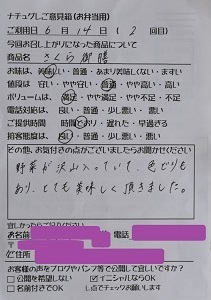 ナチュグレご意見箱(お弁当用)
ご利用日 6月14日(2回目)
今回お召し上がりになった商品について
商品名 さくら御膳
お味は 美味しい・普通・あまり美味しくない・まずい
値段は 安い・やや安い・普通・やや高い・高い
ボリュームは 満足・やや満足・普通・やや不足・不足
電話対応は 良い・普通・少し悪い・悪い
ご提供時間 時間どおり・遅れた・早過ぎる
接客態度は 良い・普通・少し悪い・悪い
その他、お気付きの点がございましたらお聞かせください
野菜が沢山入っていて、色どりも
あり、とても美味しく頂きました。
宜しかったらご記入ください
お名前 電話
〒
ご住所
お客様の声をブログやパンフ等で公開して宜しいですか?
□公開を希望しない ☑イニシャルならOK
□名前付きでOK レ点でチェックお願いします